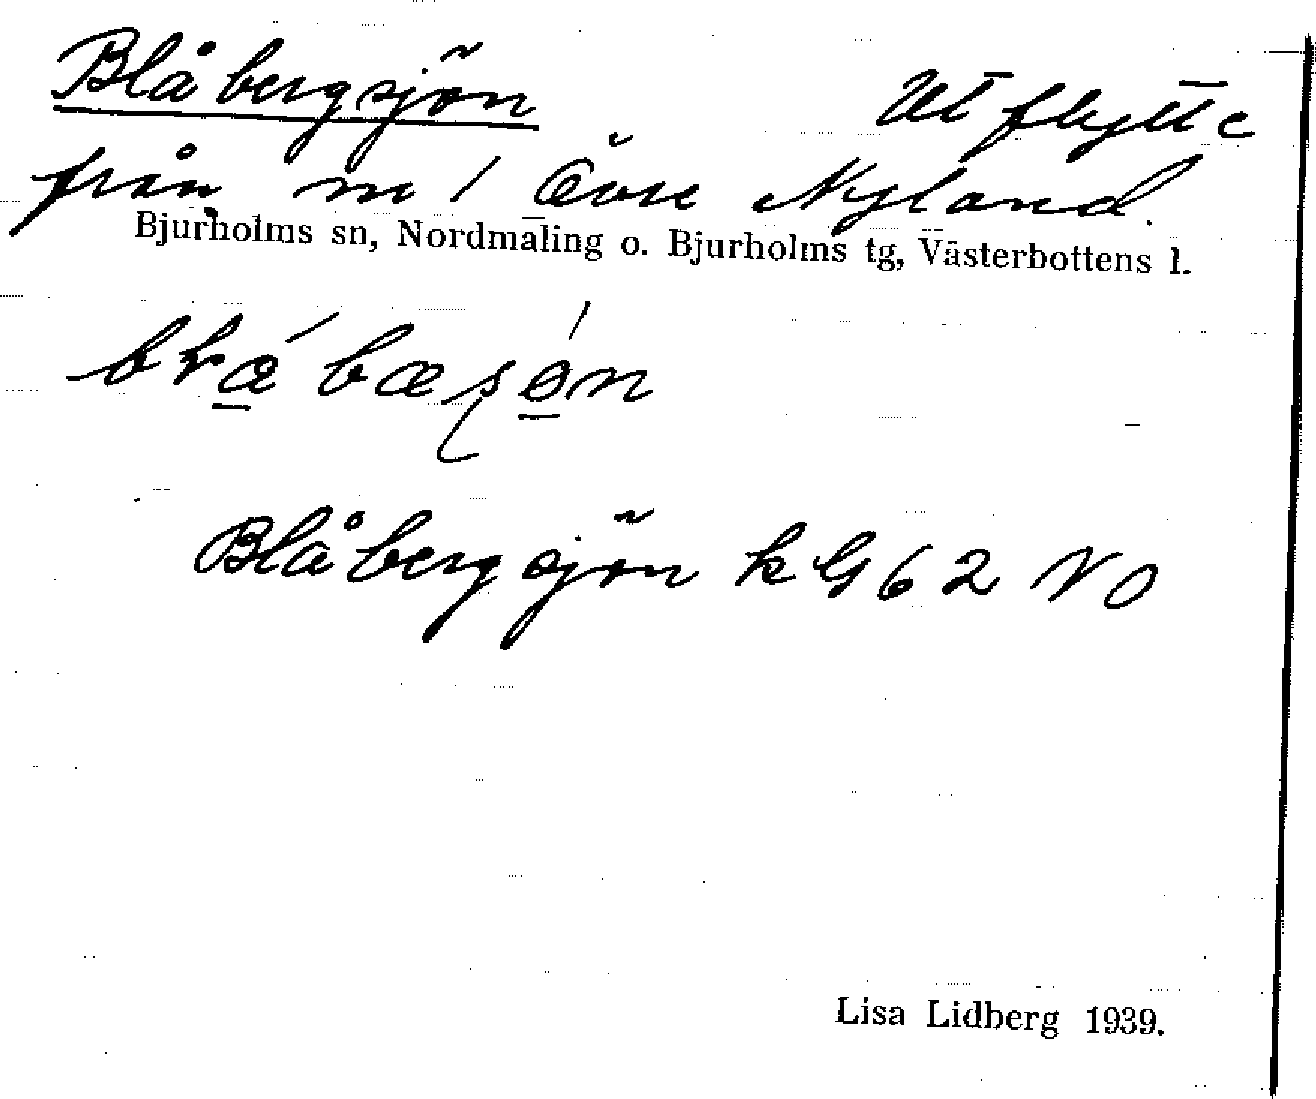 Blåbergsjön Utflytte
från m / Övre Nyland.
Bjurholms sn, Nordmaling o. Bjurholms tg, Västerbottens l.
Blåbergsjön k G 62 NO
Lisa Lidberg 1939.